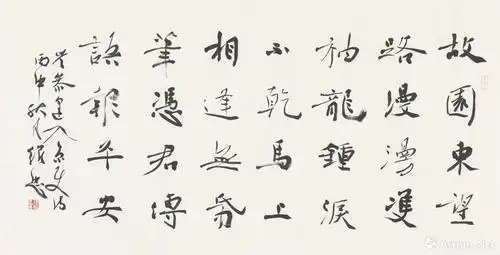 故園東望
路漫漫雙
袖龍鍾淚
不乾馬上
相逢無帋
筆憑君傳
語報平安
岑參逢入京使詩
丙申秋月
Artron.Net